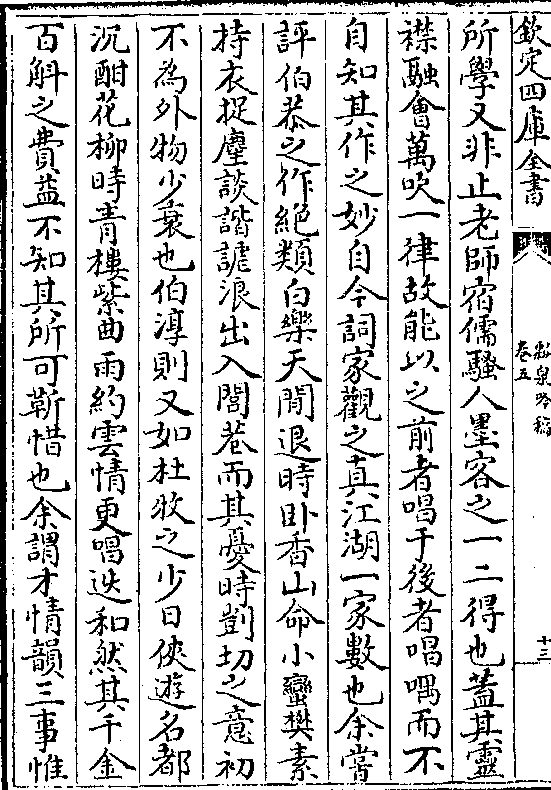 欽定四庫全書
卷五
十三
所學又非止老師宿儒騷人墨客之一二得也蓋其靈
襟融會萬吹一律故能以之前者唱于後者唱喁而不
自知其作之妙自今詞家觀之真江湖一家數也余嘗
評伯恭之作絕類白樂天閒退時卧香山命小蠻樊素
持衣捉麈談諧謔浪出入閭巷而其憂時剴切之意初
不為外物少衰也伯淳則又如杜牧之少日俠遊名都
沉酣花柳時青樓紫曲雨約雲情更唱迭和然其千金
百斛之費益不知其所可靳惜也余謂才情韻三事惟